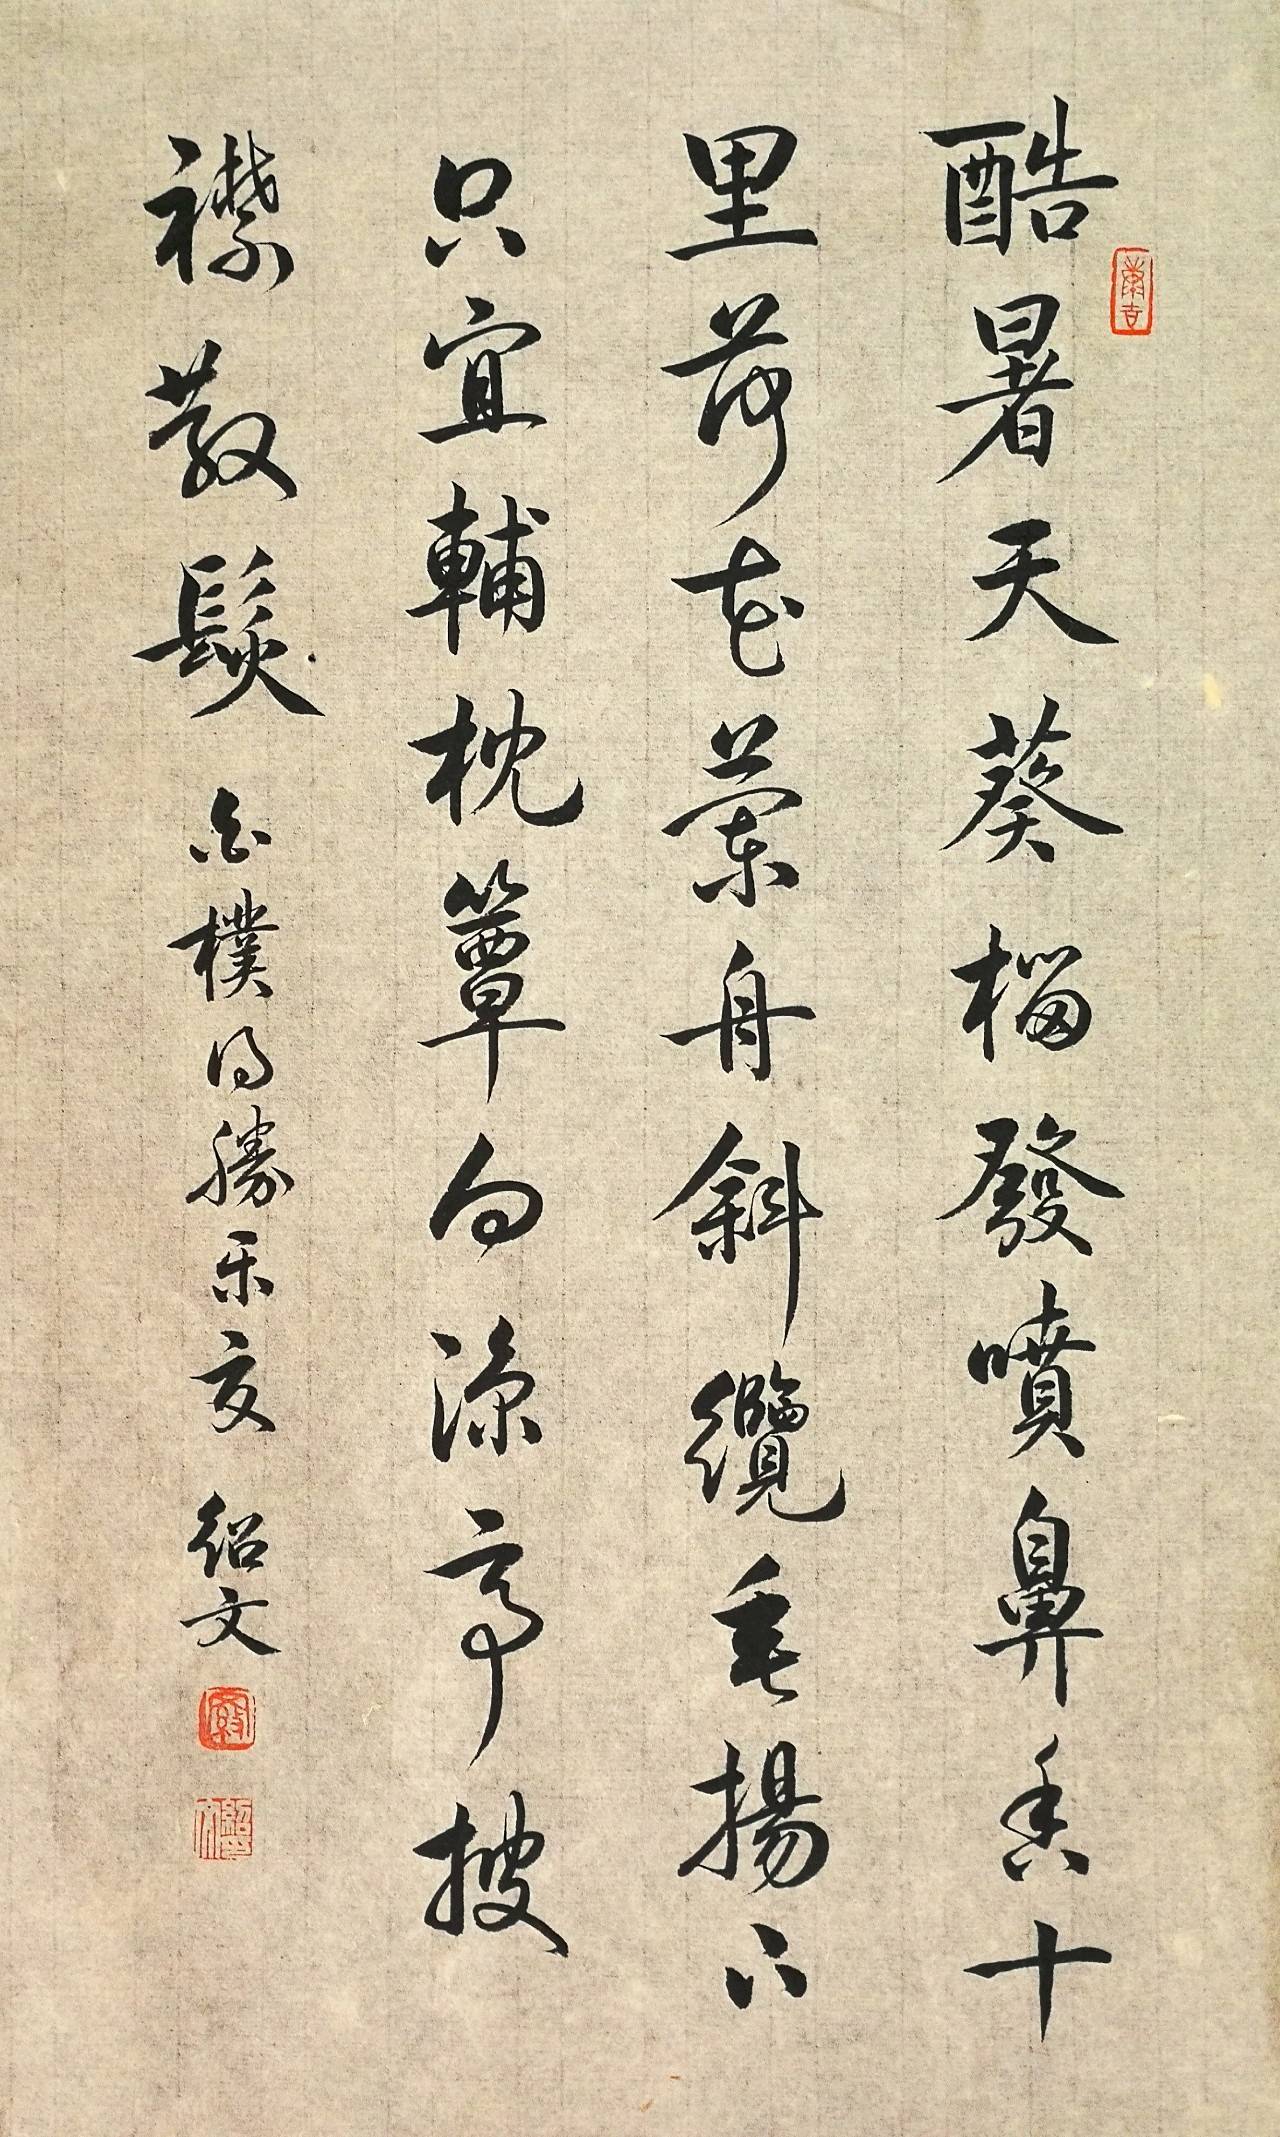 酷暑天葵榴發噴鼻香十
里荷花蘭舟斜纜垂揚下
只宜輔枕簟向涼亭披
襟散髮 白樸得勝樂夏 紹文